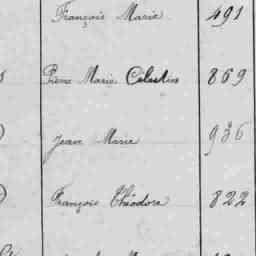 François Marie 491
Pierre Marie Célestin 869
Jean Marie 936
François Théodore 822